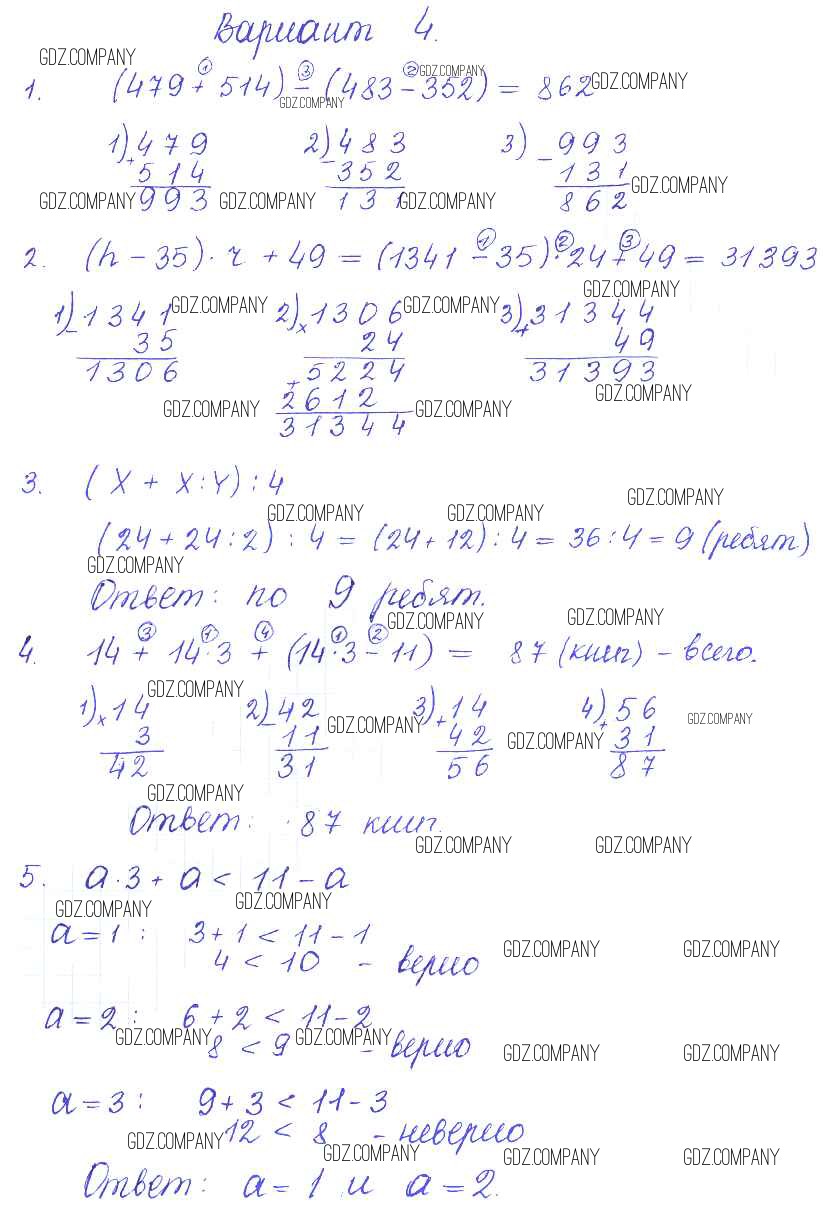 Вариант 4.
GDZ.COMPANY
1. (479 + 514) - (483 - 352) = 862
① ③ ②
GDZ.COMPANY GDZ.COMPANY GDZ.COMPANY
1) 479 2) 483 3) 993
+ 514 - 352 - 131
993 131 862
GDZ.COMPANY GDZ.COMPANY GDZ.COMPANY GDZ.COMPANY
2. (h - 35) · r + 49 = (1341 - 35) · 24 + 49 = 31393
① ② ③
GDZ.COMPANY
1) 1341 2) 1306 3) 31344
GDZ.COMPANY GDZ.COMPANY
- 35 × 24 + 49
1306 + 5224 31393
GDZ.COMPANY
2612
GDZ.COMPANY GDZ.COMPANY
31344
3. (X + X : Y) : 4
GDZ.COMPANY
GDZ.COMPANY GDZ.COMPANY
(24 + 24 : 2) : 4 = (24 + 12) : 4 = 36 : 4 = 9 (ребят)
GDZ.COMPANY
Ответ: по 9 ребят.
GDZ.COMPANY GDZ.COMPANY
③ ① ④ ① ②
4. 14 + 14 · 3 + (14 · 3 - 11) = 87 (книг) - всего.
GDZ.COMPANY
1) 14 2) 42 3) 14 4) 56
GDZ.COMPANY GDZ.COMPANY
× 3 - 11 + 42 + 31
GDZ.COMPANY
42 31 56 87
GDZ.COMPANY
Ответ: 87 книг.
GDZ.COMPANY GDZ.COMPANY
5. a · 3 + a < 11 - a
GDZ.COMPANY GDZ.COMPANY
a = 1 : 3 + 1 < 11 - 1
GDZ.COMPANY GDZ.COMPANY
4 < 10 - верно
a = 2 : 6 + 2 < 11 - 2
GDZ.COMPANY GDZ.COMPANY
8 < 9 - верно
GDZ.COMPANY GDZ.COMPANY
a = 3 : 9 + 3 < 11 - 3
GDZ.COMPANY
12 < 8 - неверно
GDZ.COMPANY GDZ.COMPANY GDZ.COMPANY
Ответ: a = 1 и a = 2.